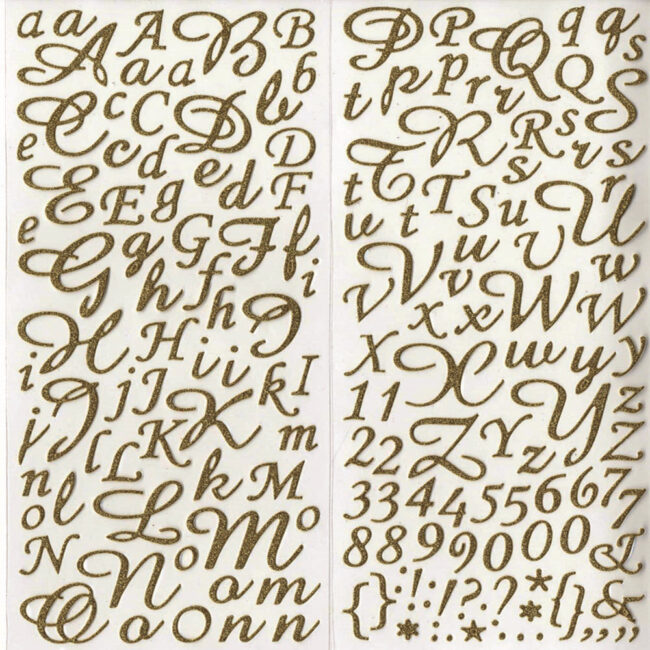 a a A A B B
a a b b
C c C D D
e c d e d
E E g F
e G g G F f
h f h i
H H i i J I
i J j J K k
i l L K m
n o l L k M
N N o M o
O o O o m n n
P P Q Q q q s
t p p r r S
R R s r s
t T T S s r
w t u u v U
v V v W w W
x x x
X X w w y y
1 1 Y y z
2 2 Z Y z Z
3 3 4 4 5 5 6 6 7 7
8 8 9 9 0 0 0 &
{ } : ! ; ! ? . ? * { } &
* . * . * , , , ,